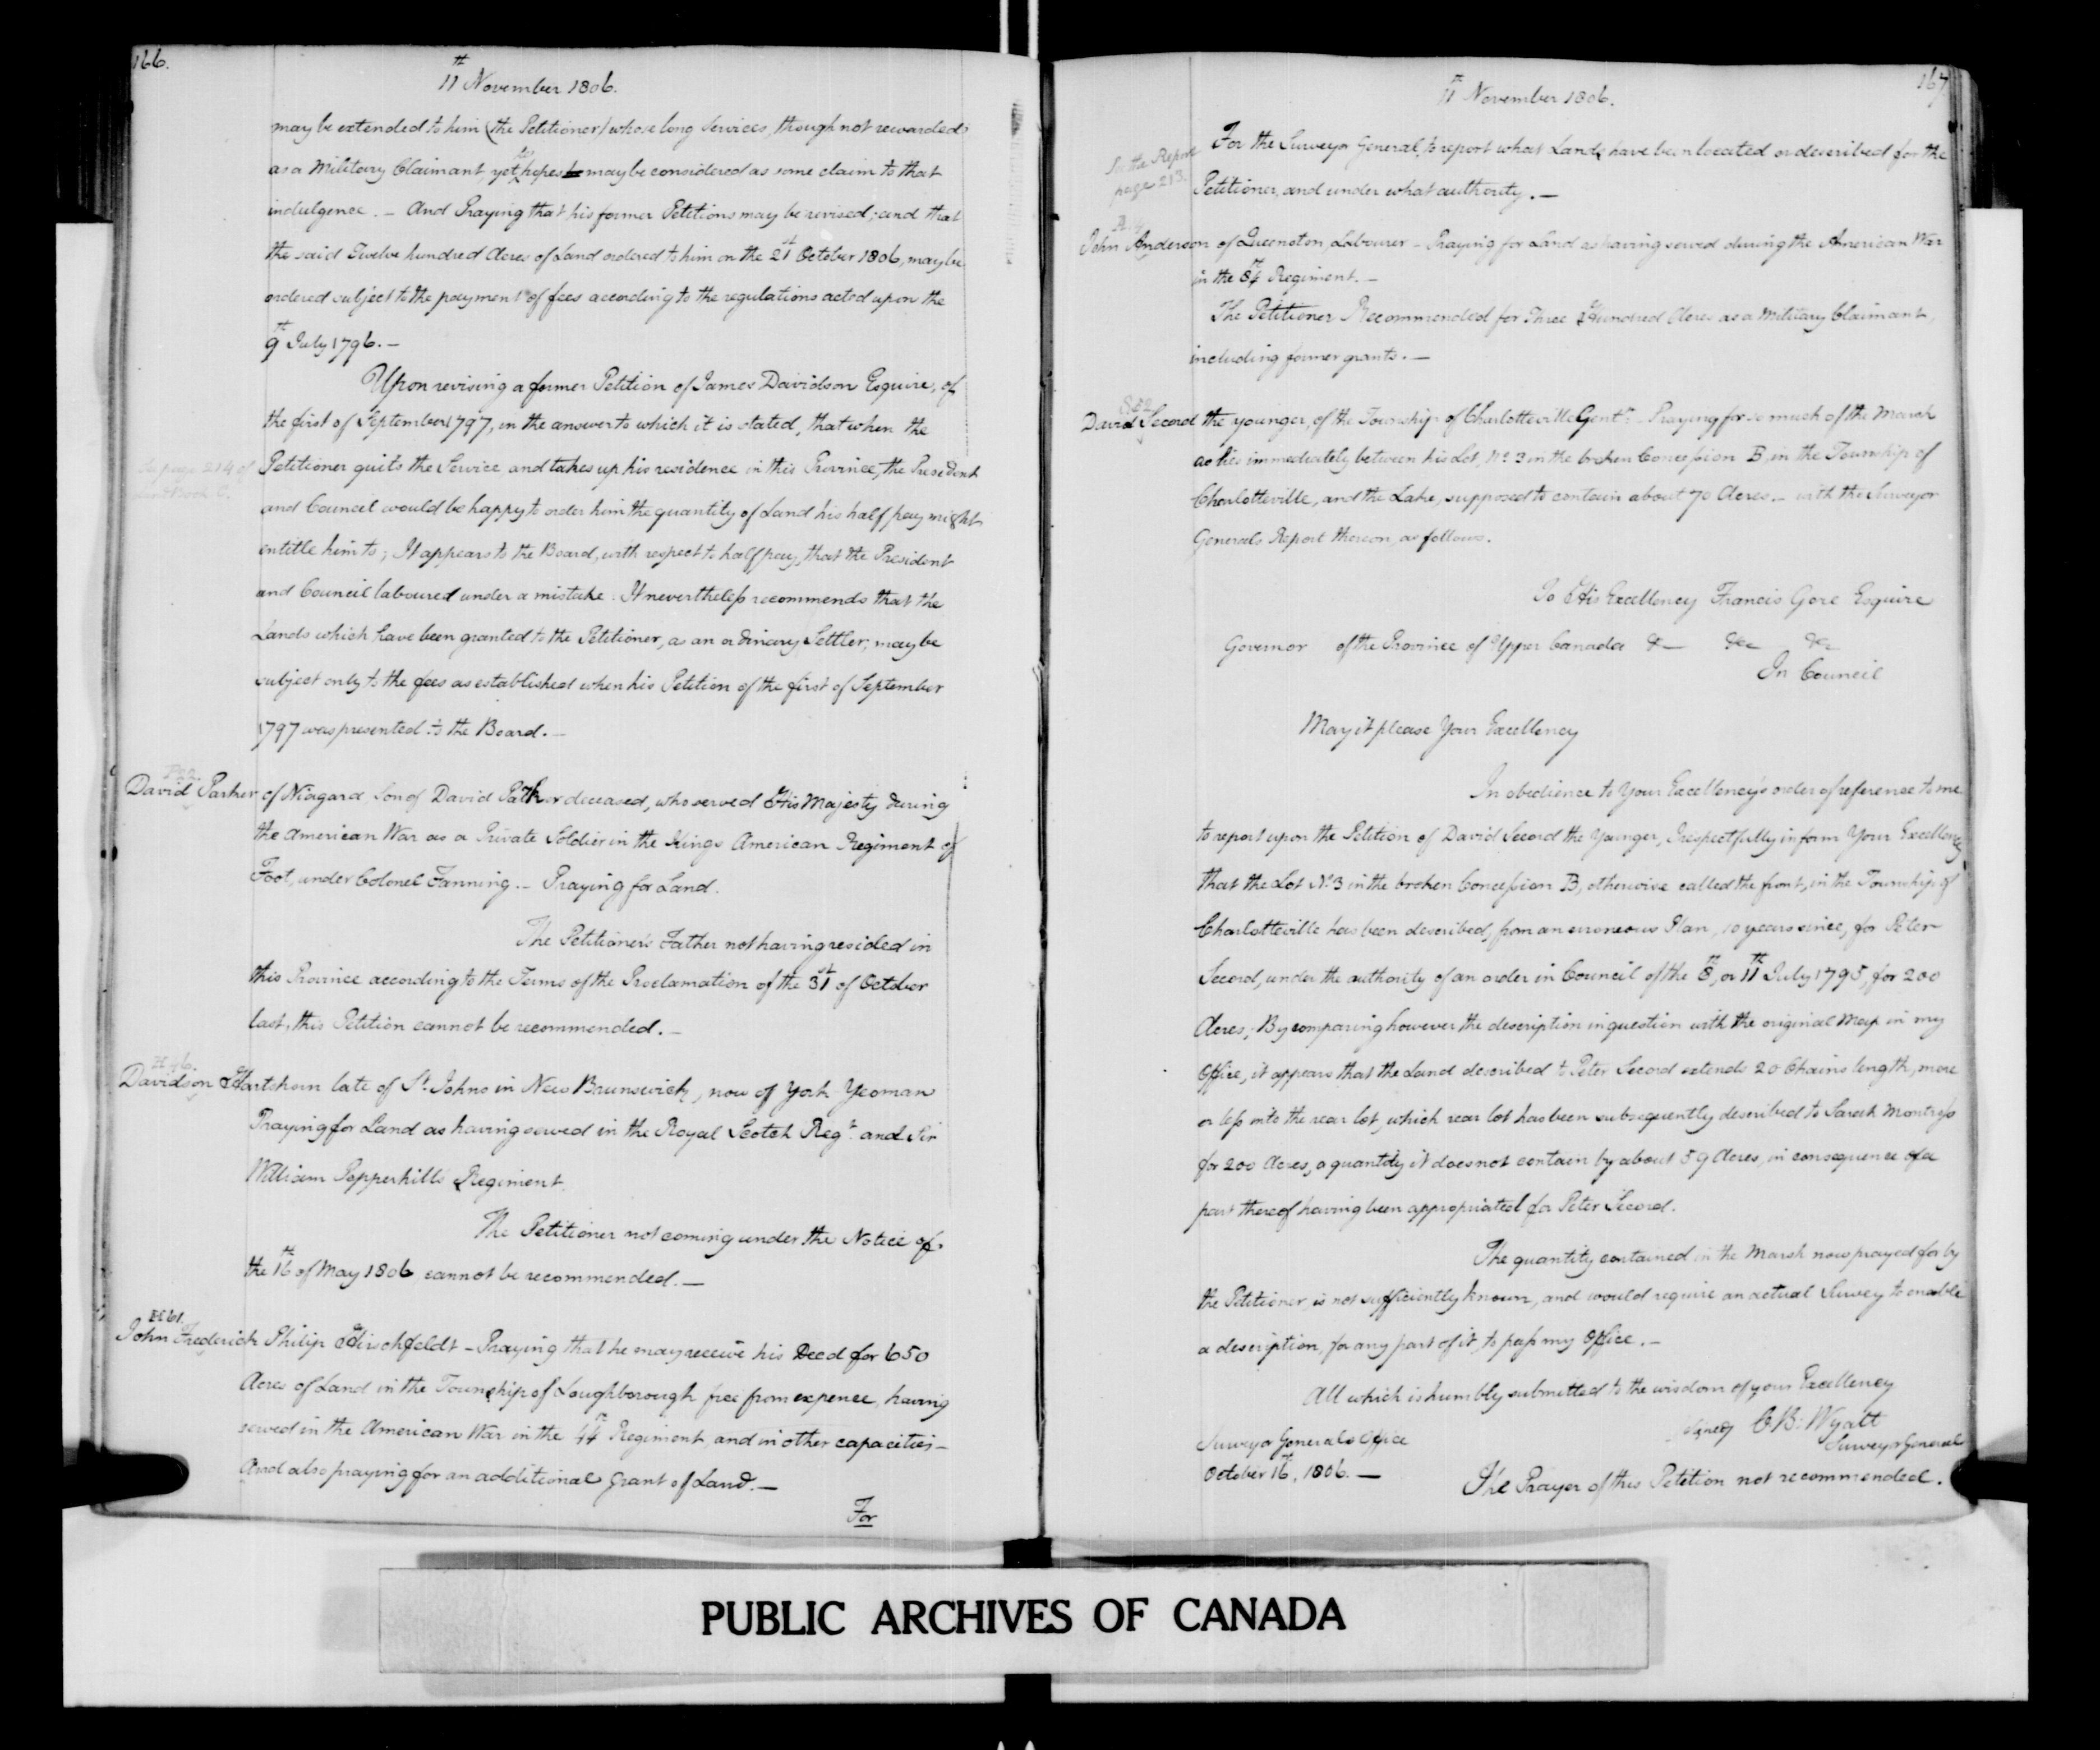 166.
11th November 1806.
may be extended to him (the Petitioner) whose long services, though not rewarded
as a Military Claimant, yet he hopes may be considered as some claim to that
indulgence. – And Praying that his former Petitions may be revised; and that
the said Twelve hundred Acres of Land ordered to him on the 21st October 1806, may be
ordered subject to the payment of fees according to the regulations acted upon the
9th July 1796. –
Upon revising a former Petition of James Davidson Esquire, of
the first of September 1797, in the answer to which it is stated, that when the
See page 214 of
Land Book C.
Petitioner quits the Service and takes up his residence in this Province, the President
and Council would be happy to order him the quantity of Land his half pay might
entitle him to; It appears to the Board, with respect to half pay, that the President
and Council laboured under a mistake. It nevertheless recommends that the
Lands which have been granted to the Petitioner, as an ordinary Settler, may be
subject only to the fees as established when his Petition of the first of September
1797 was presented to the Board. –
P22.
David Parker of Niagara Son of David Parker deceased, who served His Majesty during
the American War as a Private Soldier in the Kings American Regiment of
Foot, under Colonel Fanning. – Praying for Land.
The Petitioner's Father not having resided in
this Province according to the Terms of the Proclamation of the 31st of October
last, this Petition cannot be recommended. –
H46.
Davidson Hartshorn late of St. Johns in New Brunswick, now of York Yeoman
Praying for Land as having served in the Royal Scotch Regt. and Sir
William Pepperhill's Regiment.
The Petitioner not coming under the Notice of
the 16th of May 1806 cannot be recommended. –
H61.
John Frederick Philip Hirschfeldt – Praying that he may receive his Deed for 650
Acres of Land in the Township of Loughborough free from expence, having
served in the American War in the 44th Regiment, and in other capacities –
And also praying for an additional Grant of Land. –
For
167
11th November 1806.
See the Report
page 213.
For the Surveyor General, to report what Lands have been located or described for the
Petitioner, and under what authority. –
John Anderson of Queenston, Labourer – Praying for Land as having served during the American War
in the 84th Regiment. –
The Petitioner Recommended for Three Hundred Acres as a Military Claimant,
including former grants. –
David Secord the younger, of the Township of Charlotteville Gentn. – Praying for so much of the Marsh
as lies immediately between his Lot, No. 3 in the broken Concession B, in the Township of
Charlotteville, and the Lake, supposed to contain about 70 Acres. – with the Surveyor
Generals Report thereon, as follows.
To His Excellency Francis Gore Esquire
Governor of the Province of Upper Canada &c &c &c
In Council
May it please Your Excellency
In obedience to Your Excellency's order of reference to me
to report upon the Petition of David Secord the Younger, I respectfully inform Your Excellency
that the Lot No. 3 in the broken Concession B, otherwise called the front, in the Township of
Charlotteville has been described, from an erroneous Plan, 10 years since, for Peter
Secord, under the authority of an order in Council of the 8th, or 11th July 1795, for 200
Acres; By comparing however the description in question with the original Map in my
Office, it appears that the Land described to Peter Secord extends 20 Chains length, more
or less into the rear lot, which rear lot has been subsequently described to Sarah Montross
for 200 Acres, a quantity it does not contain by about 59 Acres, in consequence of a
part thereof having been appropriated for Peter Secord.
The quantity contained in the Marsh now prayed for by
the Petitioner, is not sufficiently known, and would require an actual Survey to enable
a description, for any part of it, to pass my Office. –
All which is humbly submitted to the wisdom of your Excellency
(signed) C B: Wyatt
Surveyor General
Surveyor Generals Office
October 16th, 1806. –
The Prayer of this Petition not recommended.
PUBLIC ARCHIVES OF CANADA